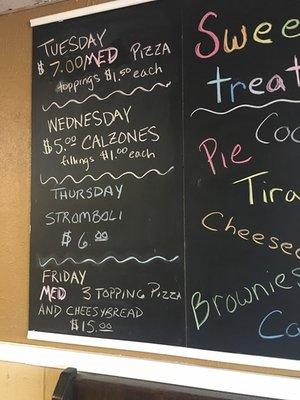 TUESDAY
$7.00 MED PIZZA
toppings $1.50 each
WEDNESDAY
$5.00 CALZONES
fillings $1.00 each
THURSDAY
STROMBOLI
$6.00
FRIDAY
MED 3 TOPPING PIZZA
AND CHEESYBREAD
$15.00
Swee
treat
Coo
Pie
Tira
Cheesec
Brownies